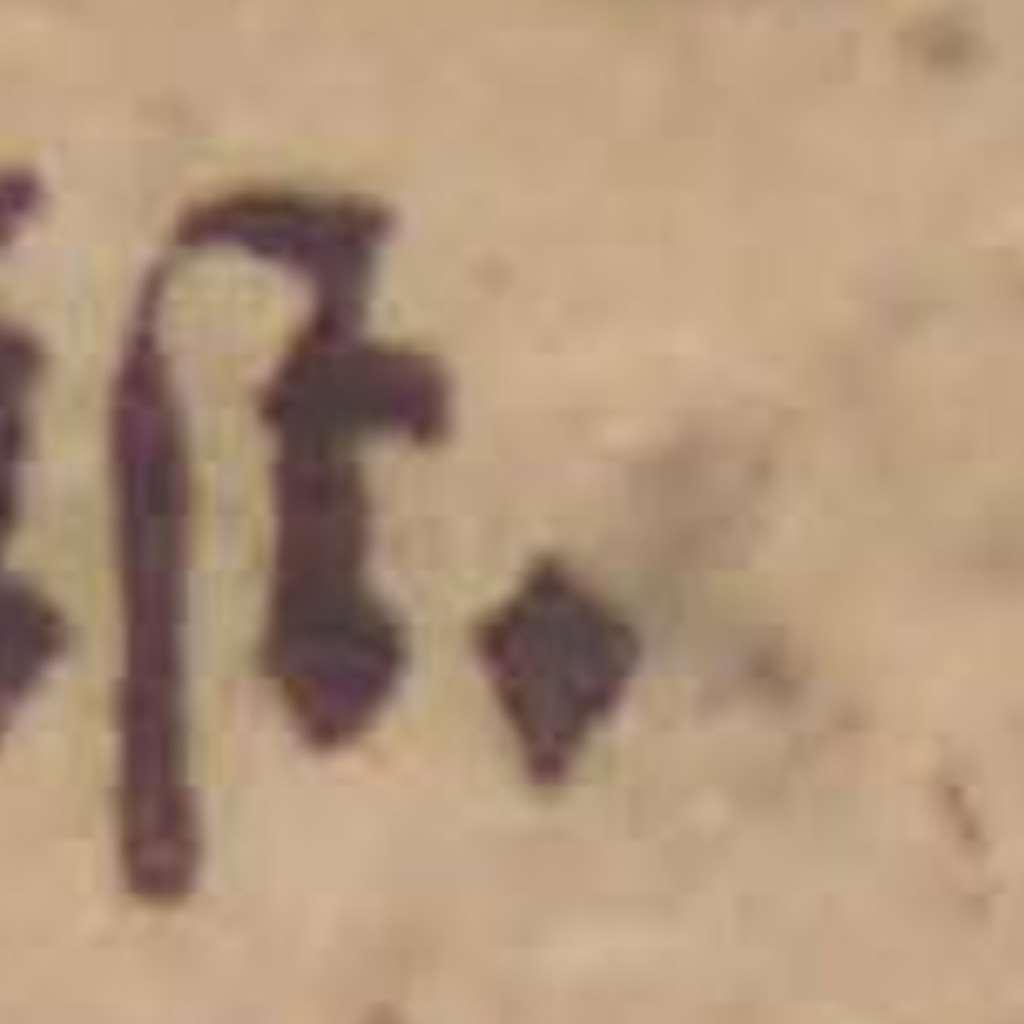 ſt.